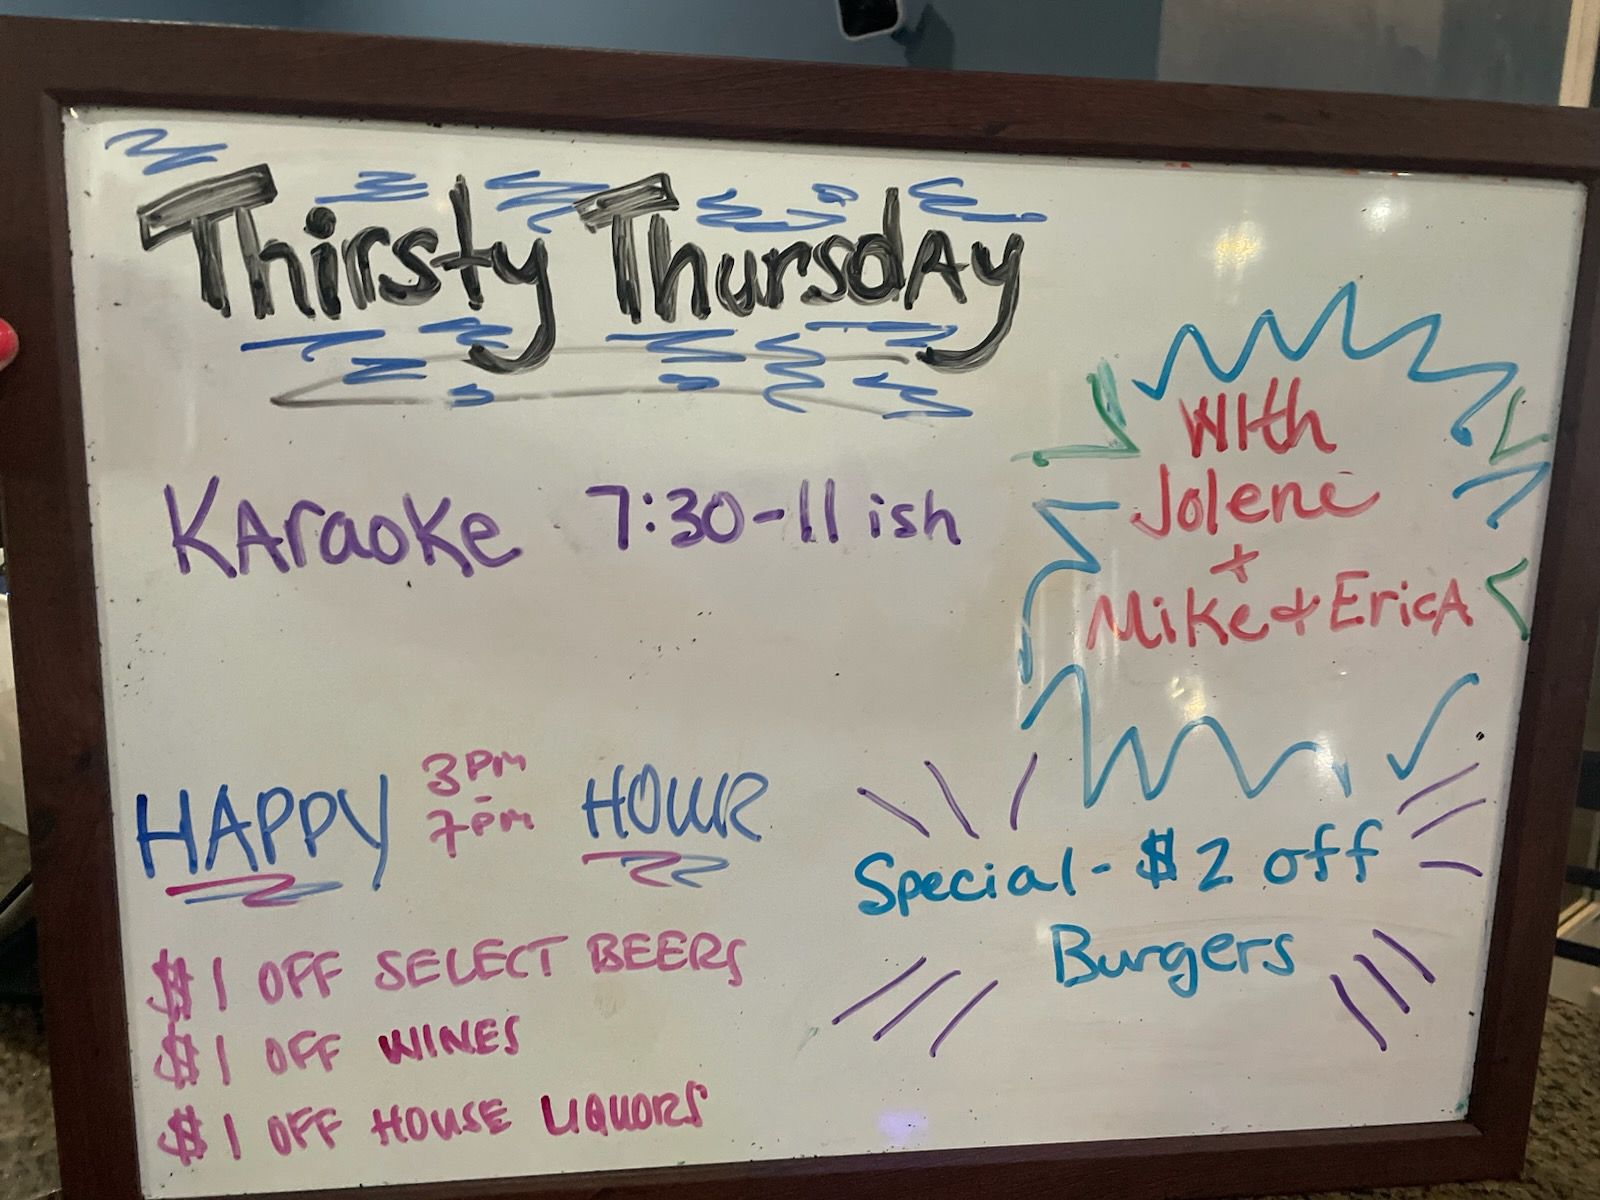 Thirsty Thursday
KAraoke 7:30-11 ish
With
Jolene
+
Mike & EricA
HAPPY 3pm - 7pm HOUR
$1 OFF SELECT BEERS
$1 OFF WINES
$1 OFF HOUSE LIQUORS
Special - $2 off
Burgers